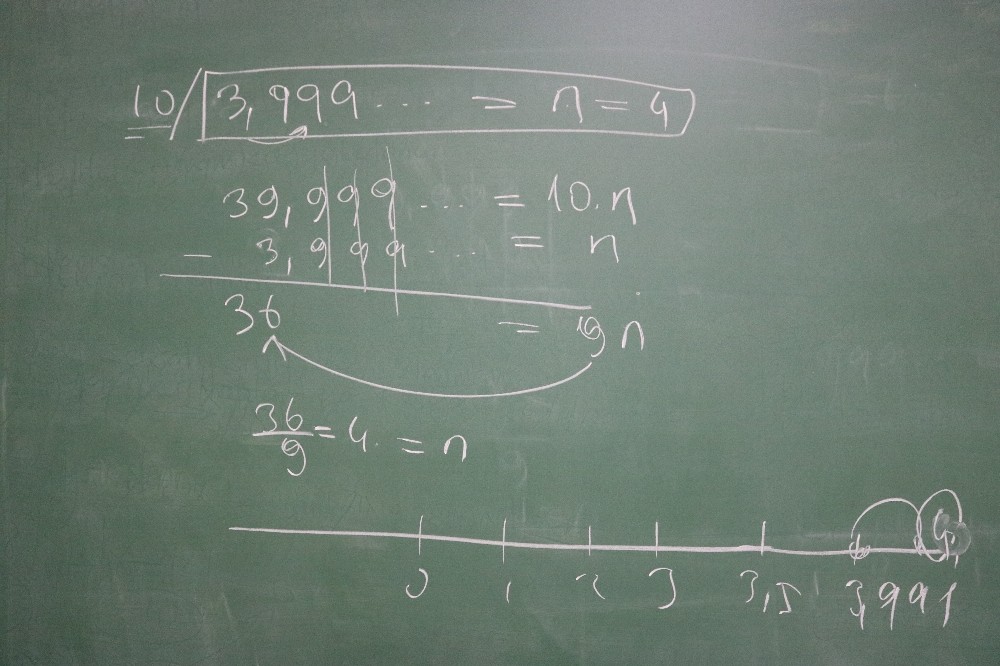 10/ 3,999 ... = n = 4
39,999 ... = 10.n
- 3,999 ... = n
36 = 9n
36/9 = 4 = n
0 1 2 3 3,5 3,99